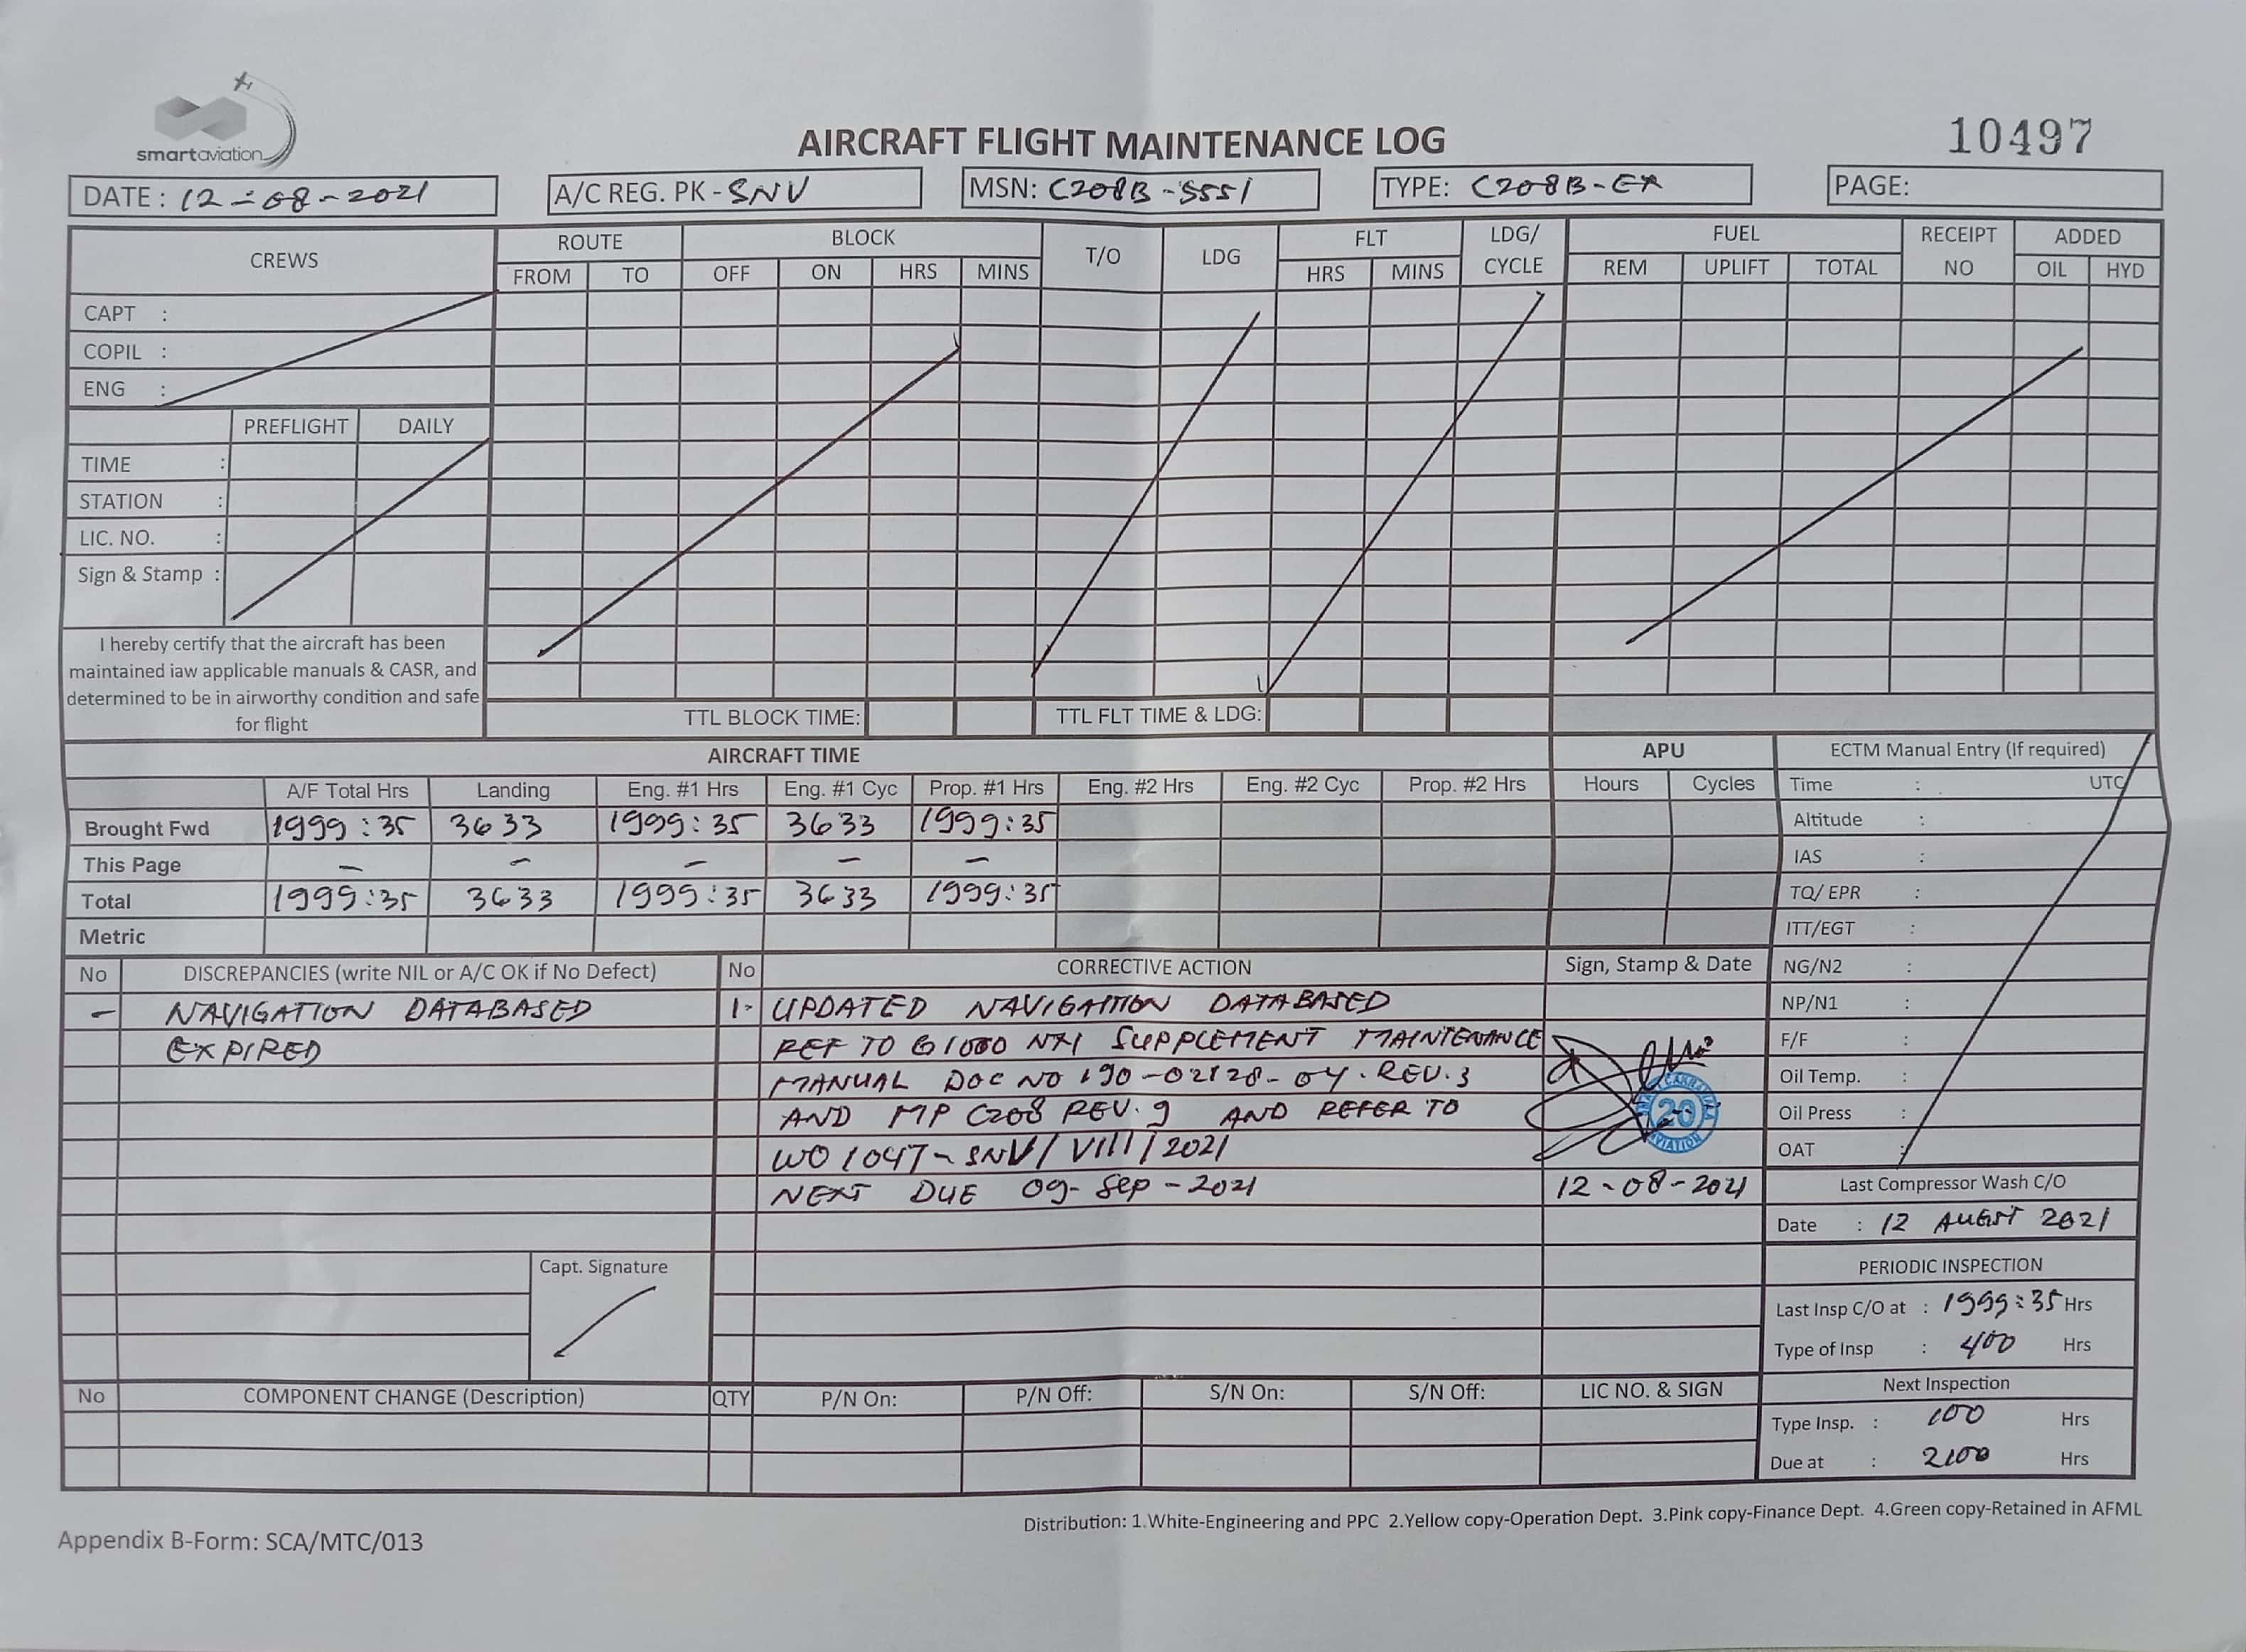 smartaviation
AIRCRAFT FLIGHT MAINTENANCE LOG
10497
DATE : 12-08-2021
A/C REG. PK - SNV
MSN: C208B-5551
TYPE: C208B-EX
PAGE:
CREWS
ROUTE
BLOCK
T/O
LDG
FLT
LDG/
CYCLE
FUEL
RECEIPT
NO
ADDED
FROM TO OFF ON HRS MINS HRS MINS REM UPLIFT TOTAL OIL HYD
CAPT :
COPIL :
ENG :
PREFLIGHT DAILY
TIME :
STATION :
LIC. NO. :
Sign & Stamp :
I hereby certify that the aircraft has been
maintained iaw applicable manuals & CASR, and
determined to be in airworthy condition and safe
for flight
TTL BLOCK TIME: TTL FLT TIME & LDG:
AIRCRAFT TIME
APU
A/F Total Hrs Landing Eng. #1 Hrs Eng. #1 Cyc Prop. #1 Hrs Eng. #2 Hrs Eng. #2 Cyc Prop. #2 Hrs Hours Cycles
Brought Fwd 1999:35 3633 1999:35 3633 1999:35
This Page - - - - -
Total 1999:35 3633 1999:35 3633 1999:35
Metric
ECTM Manual Entry (If required)
Time : UTC
Altitude :
IAS :
TQ/ EPR :
ITT/EGT :
NG/N2 :
NP/N1 :
F/F :
Oil Temp. :
Oil Press :
OAT :
No DISCREPANCIES (write NIL or A/C OK if No Defect)
- NAVIGATION DATABASED
EXPIRED
Capt. Signature
No CORRECTIVE ACTION Sign, Stamp & Date
1- UPDATED NAVIGATION DATABASED
REF TO G1000 NXI SUPPLEMENT MAINTENANCE
MANUAL DOC NO 190-02128-04. REV.3
AND MP C208 REV. 9 AND REFER TO
WO 1047-SNV/VIII/2021
NEXT DUE 09-Sep-2021
20
AVIATION
12-08-2021
Last Compressor Wash C/O
Date : 12 AUGST 2021
PERIODIC INSPECTION
Last Insp C/O at : 1999:35 Hrs
Type of Insp : 400 Hrs
Next Inspection
Type Insp. : 100 Hrs
Due at : 2100 Hrs
No COMPONENT CHANGE (Description) QTY P/N On: P/N Off: S/N On: S/N Off: LIC NO. & SIGN
Distribution: 1.White-Engineering and PPC 2.Yellow copy-Operation Dept. 3.Pink copy-Finance Dept. 4.Green copy-Retained in AFML
Appendix B-Form: SCA/MTC/013